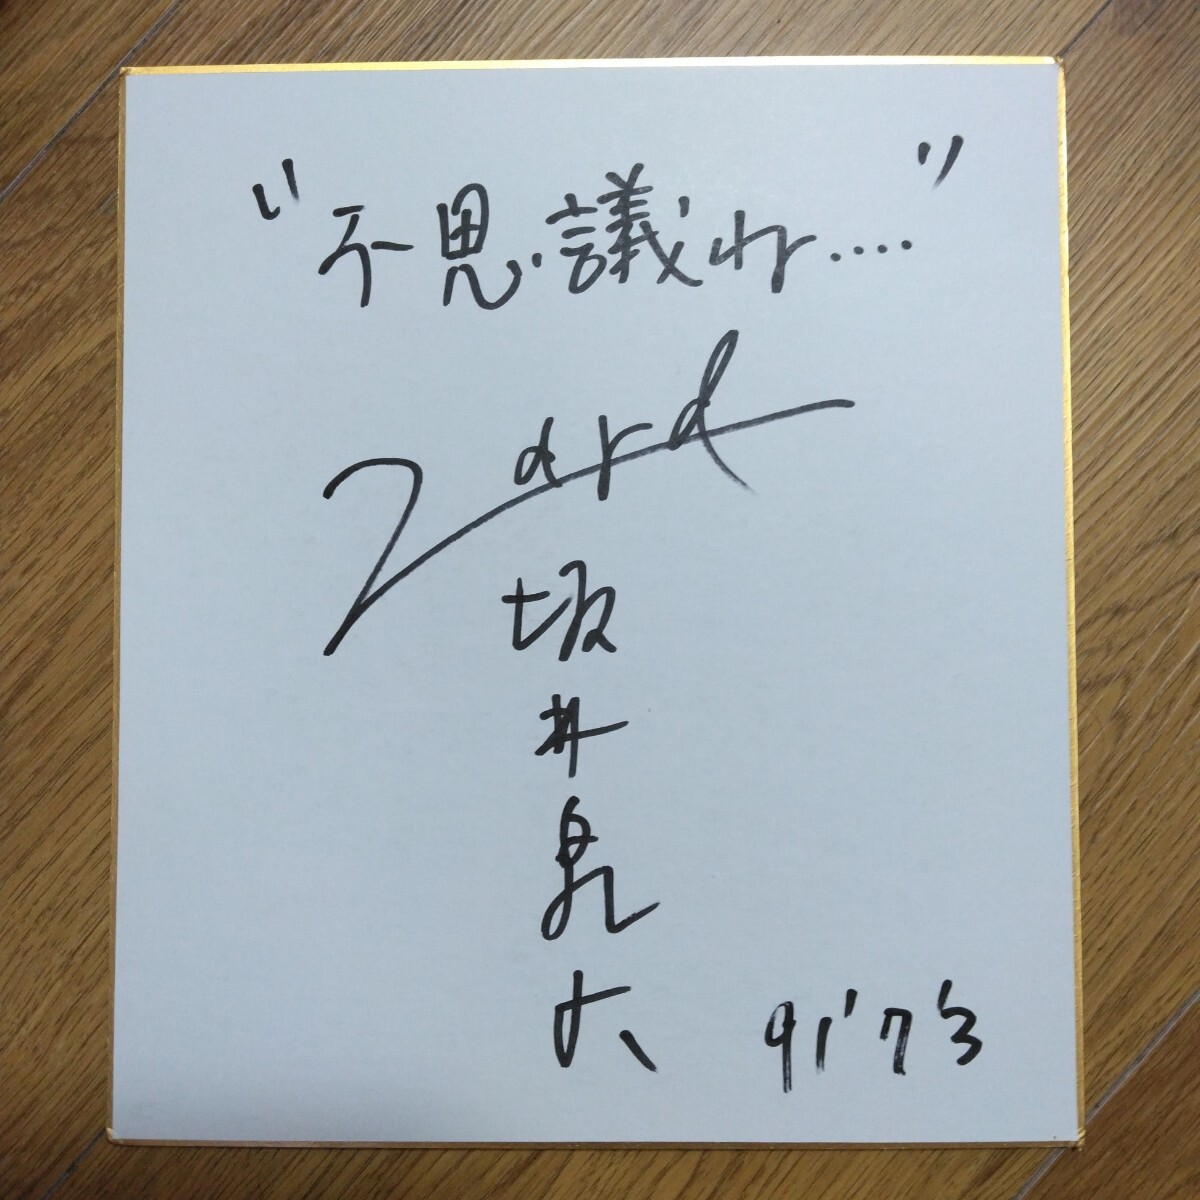 "不思議ね...."
Zard
坂井泉水
91'7'3